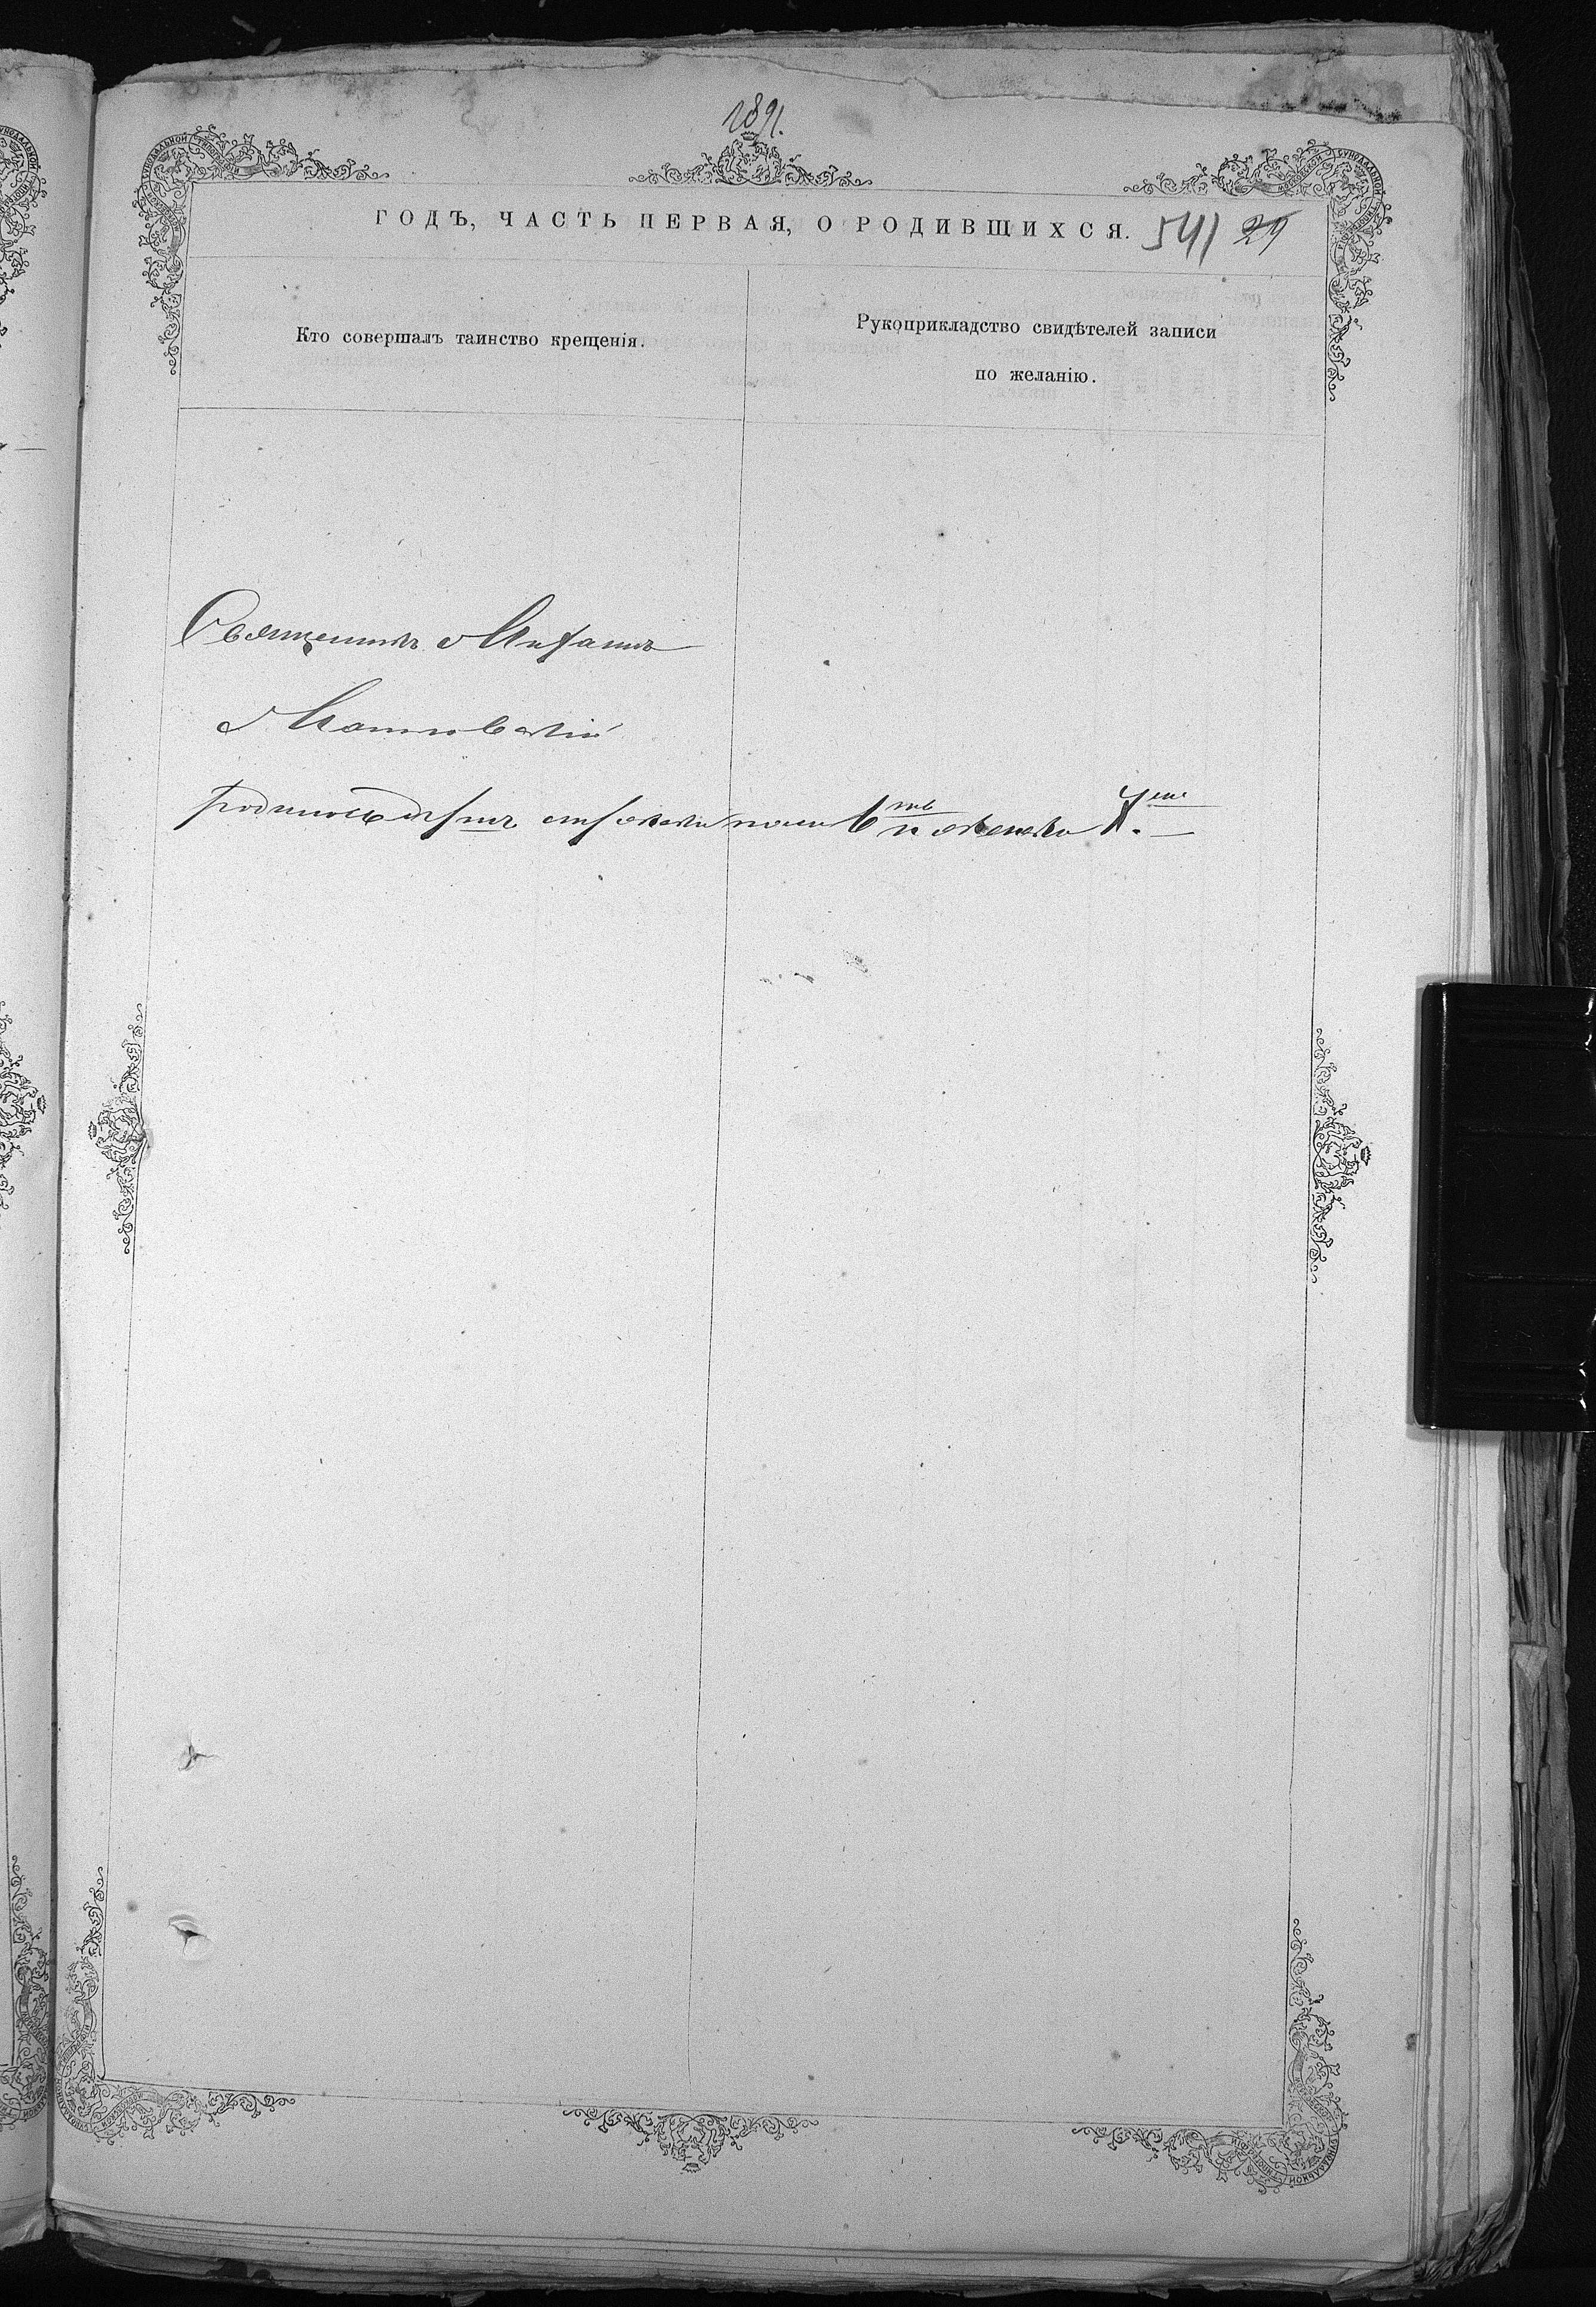 1891.
ГОДЪ, ЧАСТЬ ПЕРВАЯ, О РОДИВШИХСЯ. 541 29
Кто совершалъ таинство крещенія.
Рукоприкладство свидѣтелей записи
по желанію.
Священникъ Михаилъ
родилось мужеска пола 6 и женска 7.